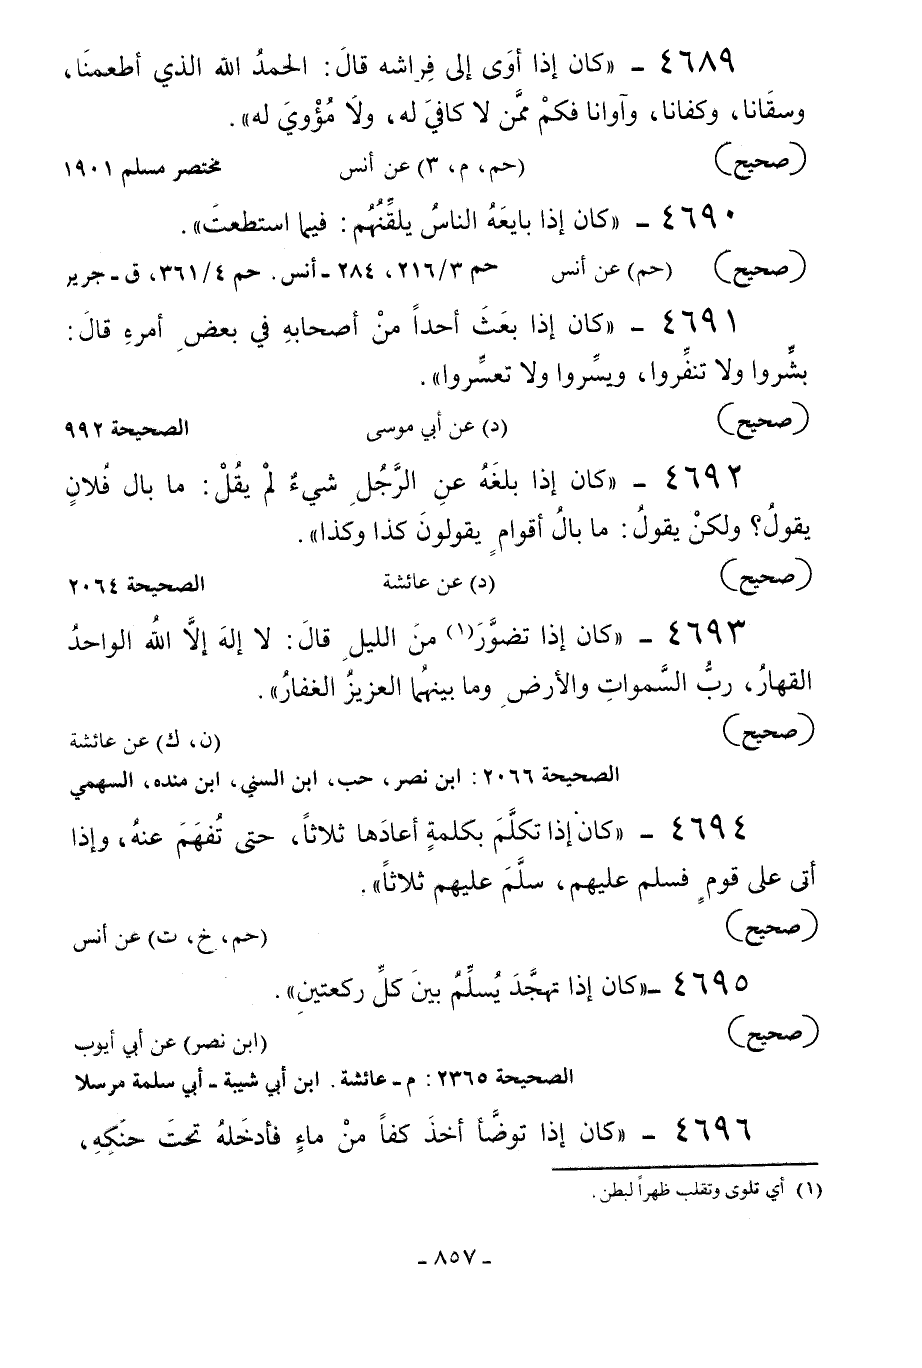 ٤٦٨٩ - «كان إذا أوَى إلى فِراشه قالَ: الحمدُ الله الذي أطعمنَا،
وسقَانا، وكفانا، وآوانا فكمْ ممَّن لا كافيَ له، ولَا مُؤْويَ له».
(صحيح) (حم، م، ٣) عن أنس مختصر مسلم ١٩٠١
٤٦٩٠ - «كان إذا بايعَهُ الناسُ يلقِّنُهُم: فيما استطعتَ».
(صحيح) (حم) عن أنس حم ٢١٦/٣، ٢٨٤ - أنس. حم ٣٦١/٤، ق - جرير
٤٦٩١ - «كان إذا بعَثَ أحداً منْ أصحابهِ في بعضِ أمرهِ قالَ:
بشِّروا ولا تنفِّروا، ويسِّروا ولا تعسِّروا».
(صحيح) (د) عن أبي موسى الصحيحة ٩٩٢
٤٦٩٢ - «كان إذا بلغَهُ عنِ الرَّجُلِ شيءٌ لمْ يقُلْ: ما بال فُلانٍ
يقولُ؟ ولكنْ يقولُ: ما بالُ أقوامٍ يقولونَ كذا وكذا».
(صحيح) (د) عن عائشة الصحيحة ٢٠٦٤
٤٦٩٣ - «كان إذا تضوَّرَ(١) منَ الليلِ قالَ: لا إلهَ إلَّا اللهُ الواحدُ
القهارُ، ربُّ السَّمواتِ والأرضِ وما بينهُما العزيزُ الغفارُ».
(صحيح) (ن، ك) عن عائشة
الصحيحة ٢٠٦٦: ابن نصر، حب، ابن السني، ابن منده، السهمي
٤٦٩٤ - «كان إذا تكلَّمَ بكلمةٍ أعادَها ثلاثاً، حتى تُفهَمَ عنهُ، وإذا
أتى على قومٍ فسلم عليهم، سلَّمَ عليهم ثلاثاً».
(صحيح) (حم، خ، ت) عن أنس
٤٦٩٥ - «كان إذا تهجَّدَ يُسلِّمُ بينَ كلِّ ركعتينِ».
(صحيح) (ابن نصر) عن أبي أيوب
الصحيحة ٢٣٦٥: م - عائشة. ابن أبي شيبة - أبي سلمة مرسلا
٤٦٩٦ - «كان إذا توضَّأ أخذَ كفاً منْ ماءٍ فأدخَلهُ تحتَ حنَكِهِ،
(١) أي تلوى وتقلب ظهراً لبطن.
- ٨٥٧ -